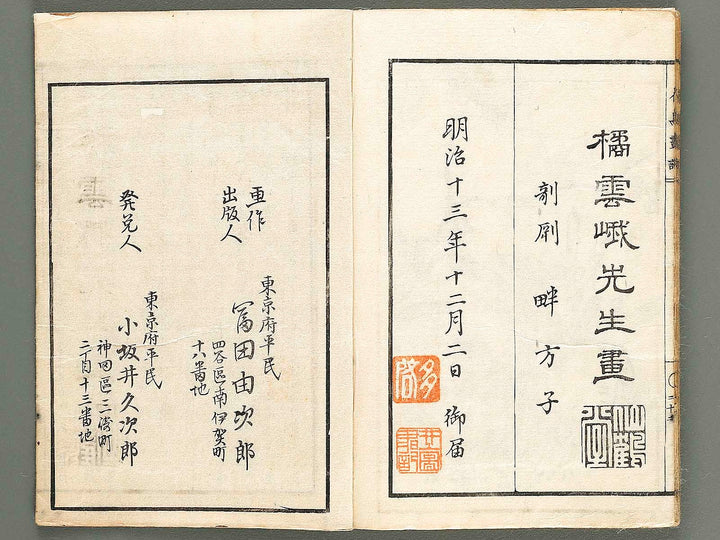 橘雲峨先生畫
剞劂 畔方子
明治十三年十二月二日 御届
画作
出版人
東京府平民
冨田由次郎
四谷區南伊賀町
十八番地
発兑人
東京府平民
小坂井久次郎
神田區三河町
二丁目十三番地